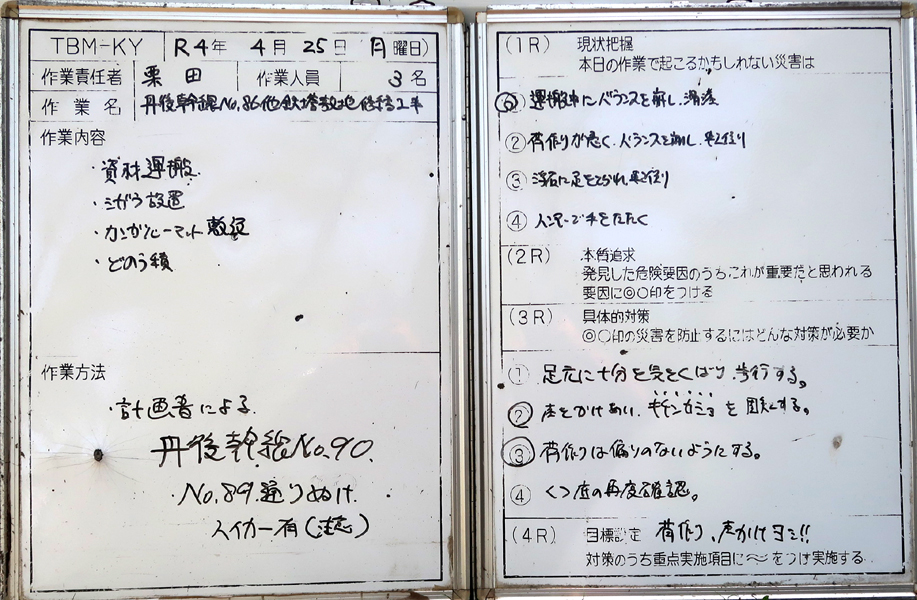 TBM-KY R4年 4月 25日 月曜日)
作業責任者 栗田 作業人員 3名
作業名 丹後幹線No,86他鉄塔敷地修繕工事
作業内容
・資材運搬
・シガラ設置
・カンガルーマット敷設
・どのう積
作業方法
・計画書による
丹後幹線No,90
・No,89 通りぬけ
スイカー有(注意)
(1R) 現状把握
本日の作業で起こるかもしれない災害は
① 運搬中にバランスを崩し、滑落
② 荷作りが悪く、バランスを崩し
③ 浮石に足をとられ
④ 手をたたく
(2R) 本質追求
発見した危険要因のうちこれが重要だと思われる
要因に◎○印をつける
(3R) 具体的対策
◎○印の災害を防止するにはどんな対策が必要か
① 足元に十分を気をくばり歩行する。
② 声をかけあい、を
③ 荷作りは偏りのないようにする。
④ くつ底の再度確認。
(4R) 目標設定 荷作り、声かけヨシ!!
対策のうち重点実施項目に〜〜をつけ実施する